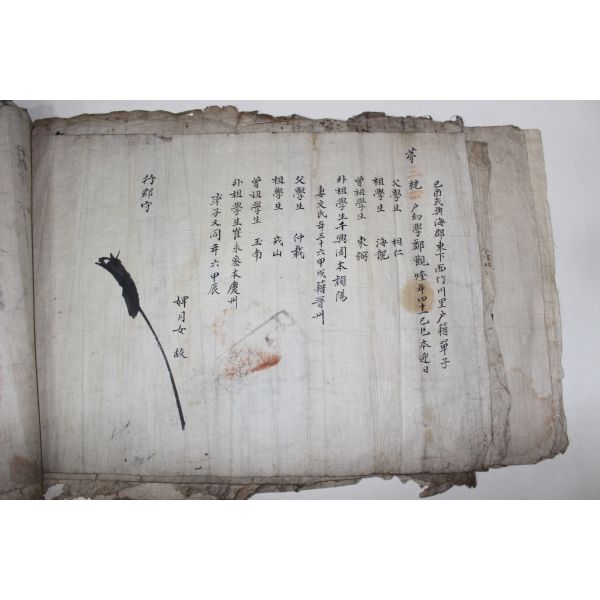 己酉式興海郡東下面竹川里戶籍單子
第二統 戶幼學鄭觀 年四十一己巳本迎日
父學生 相仁
祖學生 海龍
曾祖學生 東弼
外祖學生千興周本潁陽
妻文氏年三十六甲戌籍晋州
父學生 仲載
祖學生 成山
曾祖學生 玉南
外祖學生崔永 本慶州
率子又同年六甲辰
婢月女 故
行郡守